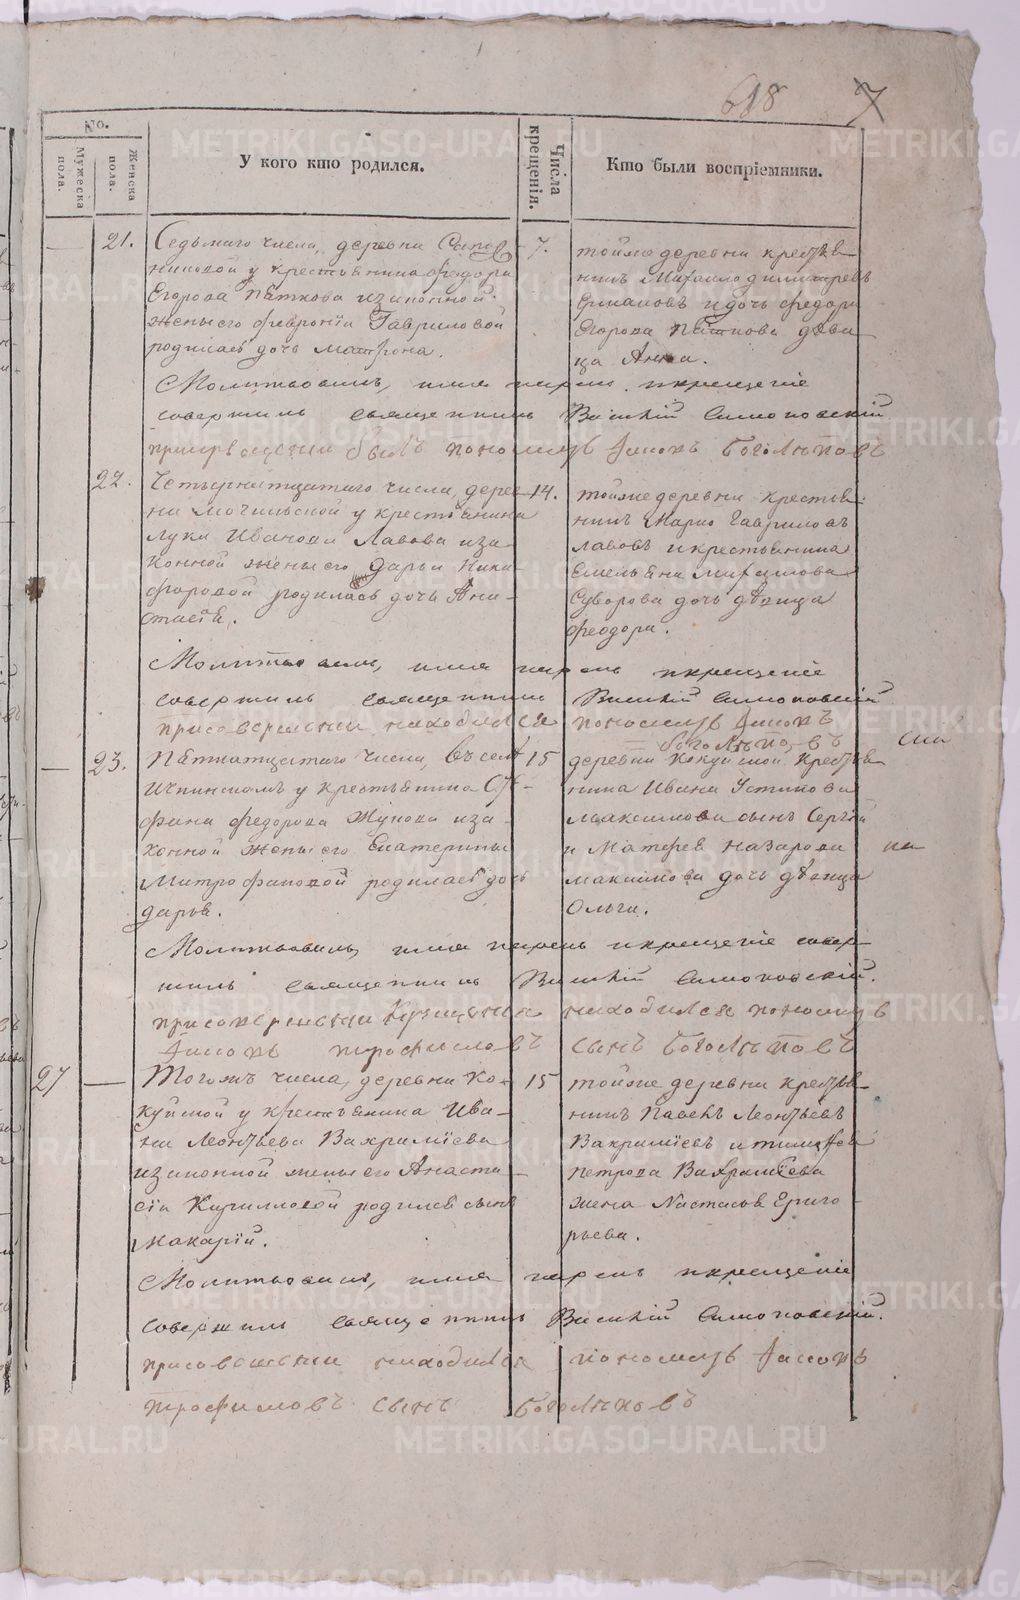 618 7
No.
Мужеска пола.
Женска пола.
У кого кто родился.
Числа крещенія.
Кто были воспріемники.
21.
Седьмаго числа, деревни
никовой у крестьянина Федора
Егорова Пѣткова и законной
жены его Февроніи Гавриловой
родилась дочь Матрона.
7.
тойже деревни крестья-
нинъ Михаило Димитревъ
Ермаковъ и дочь Федора
Егорова Пѣткова дѣви-
ца Анна.
Молитвовалъ, имя нарекъ и крещеніе
совершилъ священникъ Василій Симоновскій
при крещении былъ пономарь Іаковъ Боголѣповъ
22.
Четырнатцатаго числа, дерев-
ни Мочильской у крестьянина
Луки Иванова Лавова и за-
конной жены его Дарьи Ники-
форовой родилась дочь Ана-
стасія.
14.
тойже деревни крестья-
нинъ Марко Гавриловъ
Лавовъ и крестьянина
Емельяна
Суворова дочь дѣвица
Феодора.
Молитвовалъ, имя нарекъ и крещеніе
совершилъ священникъ Василій Симоновскій
при совершении находился пономарь Іаковъ
Боголѣповъ
23.
Пѣтнатцатаго числа, въ селѣ
у крестьянина
фана Федорова Жукова и за-
конной жены его Екатерины
Митрофановой родилась дочь
Дарья.
15
деревни Кокуйской крестья-
нина Ивана Устинова
Максимова сынъ Сергѣй
и Матфея Назарова
Максимова дочь дѣвица
Ольга.
Молитвовалъ, имя нарекъ и крещеніе совер-
шилъ священникъ Василій Симоновскій.
при совершении крещения находился пономарь
Іаковъ Трофимовъ сынъ Боголѣповъ
27
Тогожъ числа, деревни Ко-
куйской у крестьянина Ива-
на Леонтьева Вахрамѣева
и законной жены его Анаста-
сіи Кирилловой родился сынъ
Макарій.
15
тойже деревни крестья-
нинъ Павелъ Леонтьевъ
Вахрамѣевъ и Тимофея
Петрова Вахрамѣева
жена Настасья Григо-
рьева.
Молитвовалъ, имя нарекъ и крещеніе
совершилъ священникъ Василій Симоновскій.
при совершении находился пономарь Іаковъ
Трофимовъ сынъ Боголѣповъ
METRIKI.GASO-URAL.RU